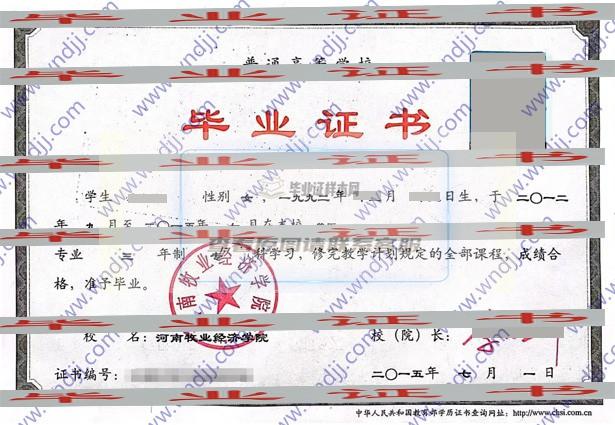 普通高等学校
毕业证书
学生 性别 女，一九九二年 月 日生，于 二〇一二
年 九 月至 二〇一五年 月在本校
专业 三 年制 专 科学习，修完教学计划规定的全部课程，成绩合
格，准予毕业。
校 名：河南牧业经济学院 校（院）长：
证书编号： 二〇一五年 七 月 一 日
中华人民共和国教育部学历证书查询网址：http://www.chsi.com.cn
毕业证书
毕业证书
毕业证书
毕业证书
毕业证书
www.wndjj.com
毕业证样本网
查看原图请联系客服
南牧业经济学院